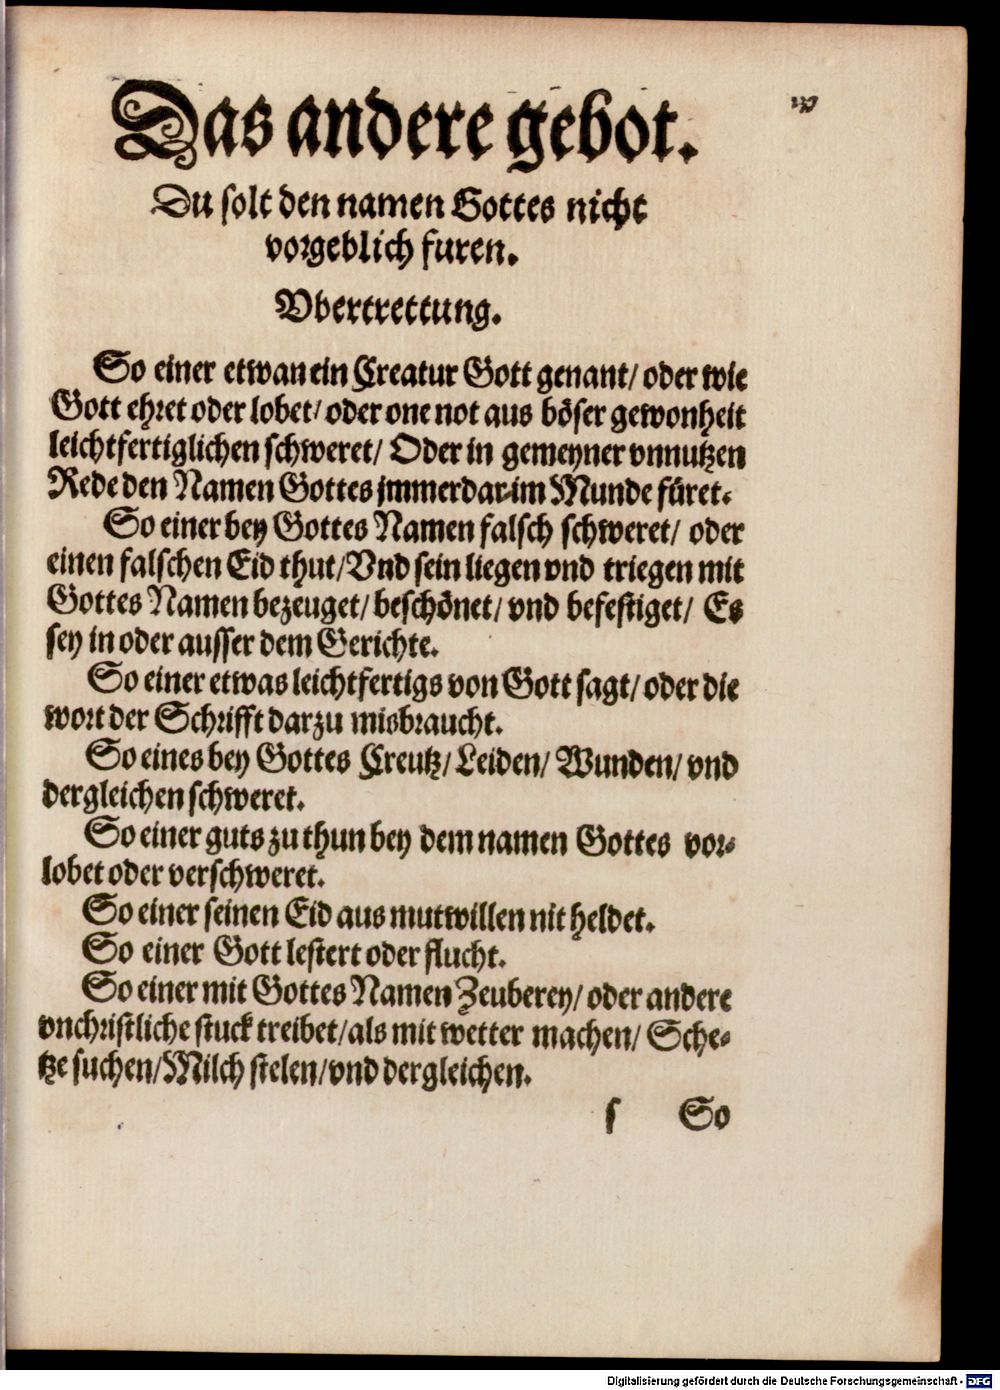 Das andere gebot.
Du solt den namen Gottes nicht
vorgeblich furen.
Vbertrettung.
So einer etwan ein Creatur Gott genant/ oder wie
Gott ehret oder lobet/ oder one not aus böser gewonheit
leichtfertiglichen schweret/ Oder in gemeyner vnnutzen
Rede den Namen Gottes jmmerdar im Munde füret.
So einer bey Gottes Namen falsch schweret/ oder
einen falschen Eid thut/ Vnd sein liegen vnd triegen mit
Gottes Namen bezeuget/ beschönet/ vnd befestiget/ Es
sey in oder ausser dem Gerichte.
So einer etwas leichtfertigs von Gott sagt/ oder die
wort der Schrifft darzu misbraucht.
So eines bey Gottes Creutz/ Leiden/ Wunden/ vnd
dergleichen schweret.
So einer guts zu thun bey dem namen Gottes vor-
lobet oder verschweret.
So einer seinen Eid aus mutwillen nit heldet.
So einer Gott lestert oder flucht.
So einer mit Gottes Namen Zeuberey/ oder andere
vnchristliche stuck treibet/ als mit wetter machen/ Sche-
tze suchen/ Milch stelen/ vnd dergleichen.
f So
Digitalisierung gefördert durch die Deutsche Forschungsgemeinschaft - DFG